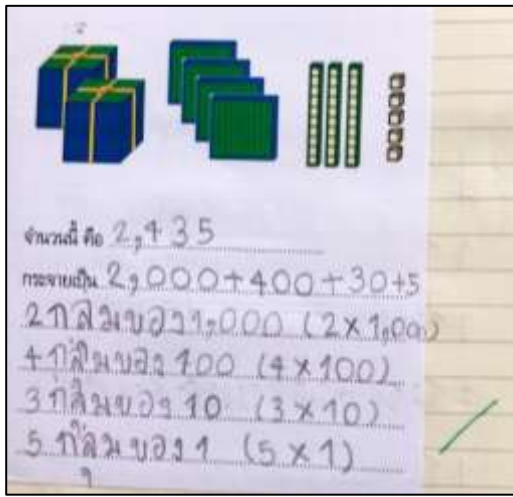 จำนวนนี้ คือ 2,435
กระจายเป็น 2,000+400+30+5
2 กลุ่มของ 1,000 (2×1,000)
4 กลุ่มของ 100 (4×100)
3 กลุ่มของ 10 (3×10)
5 กลุ่มของ 1 (5×1)